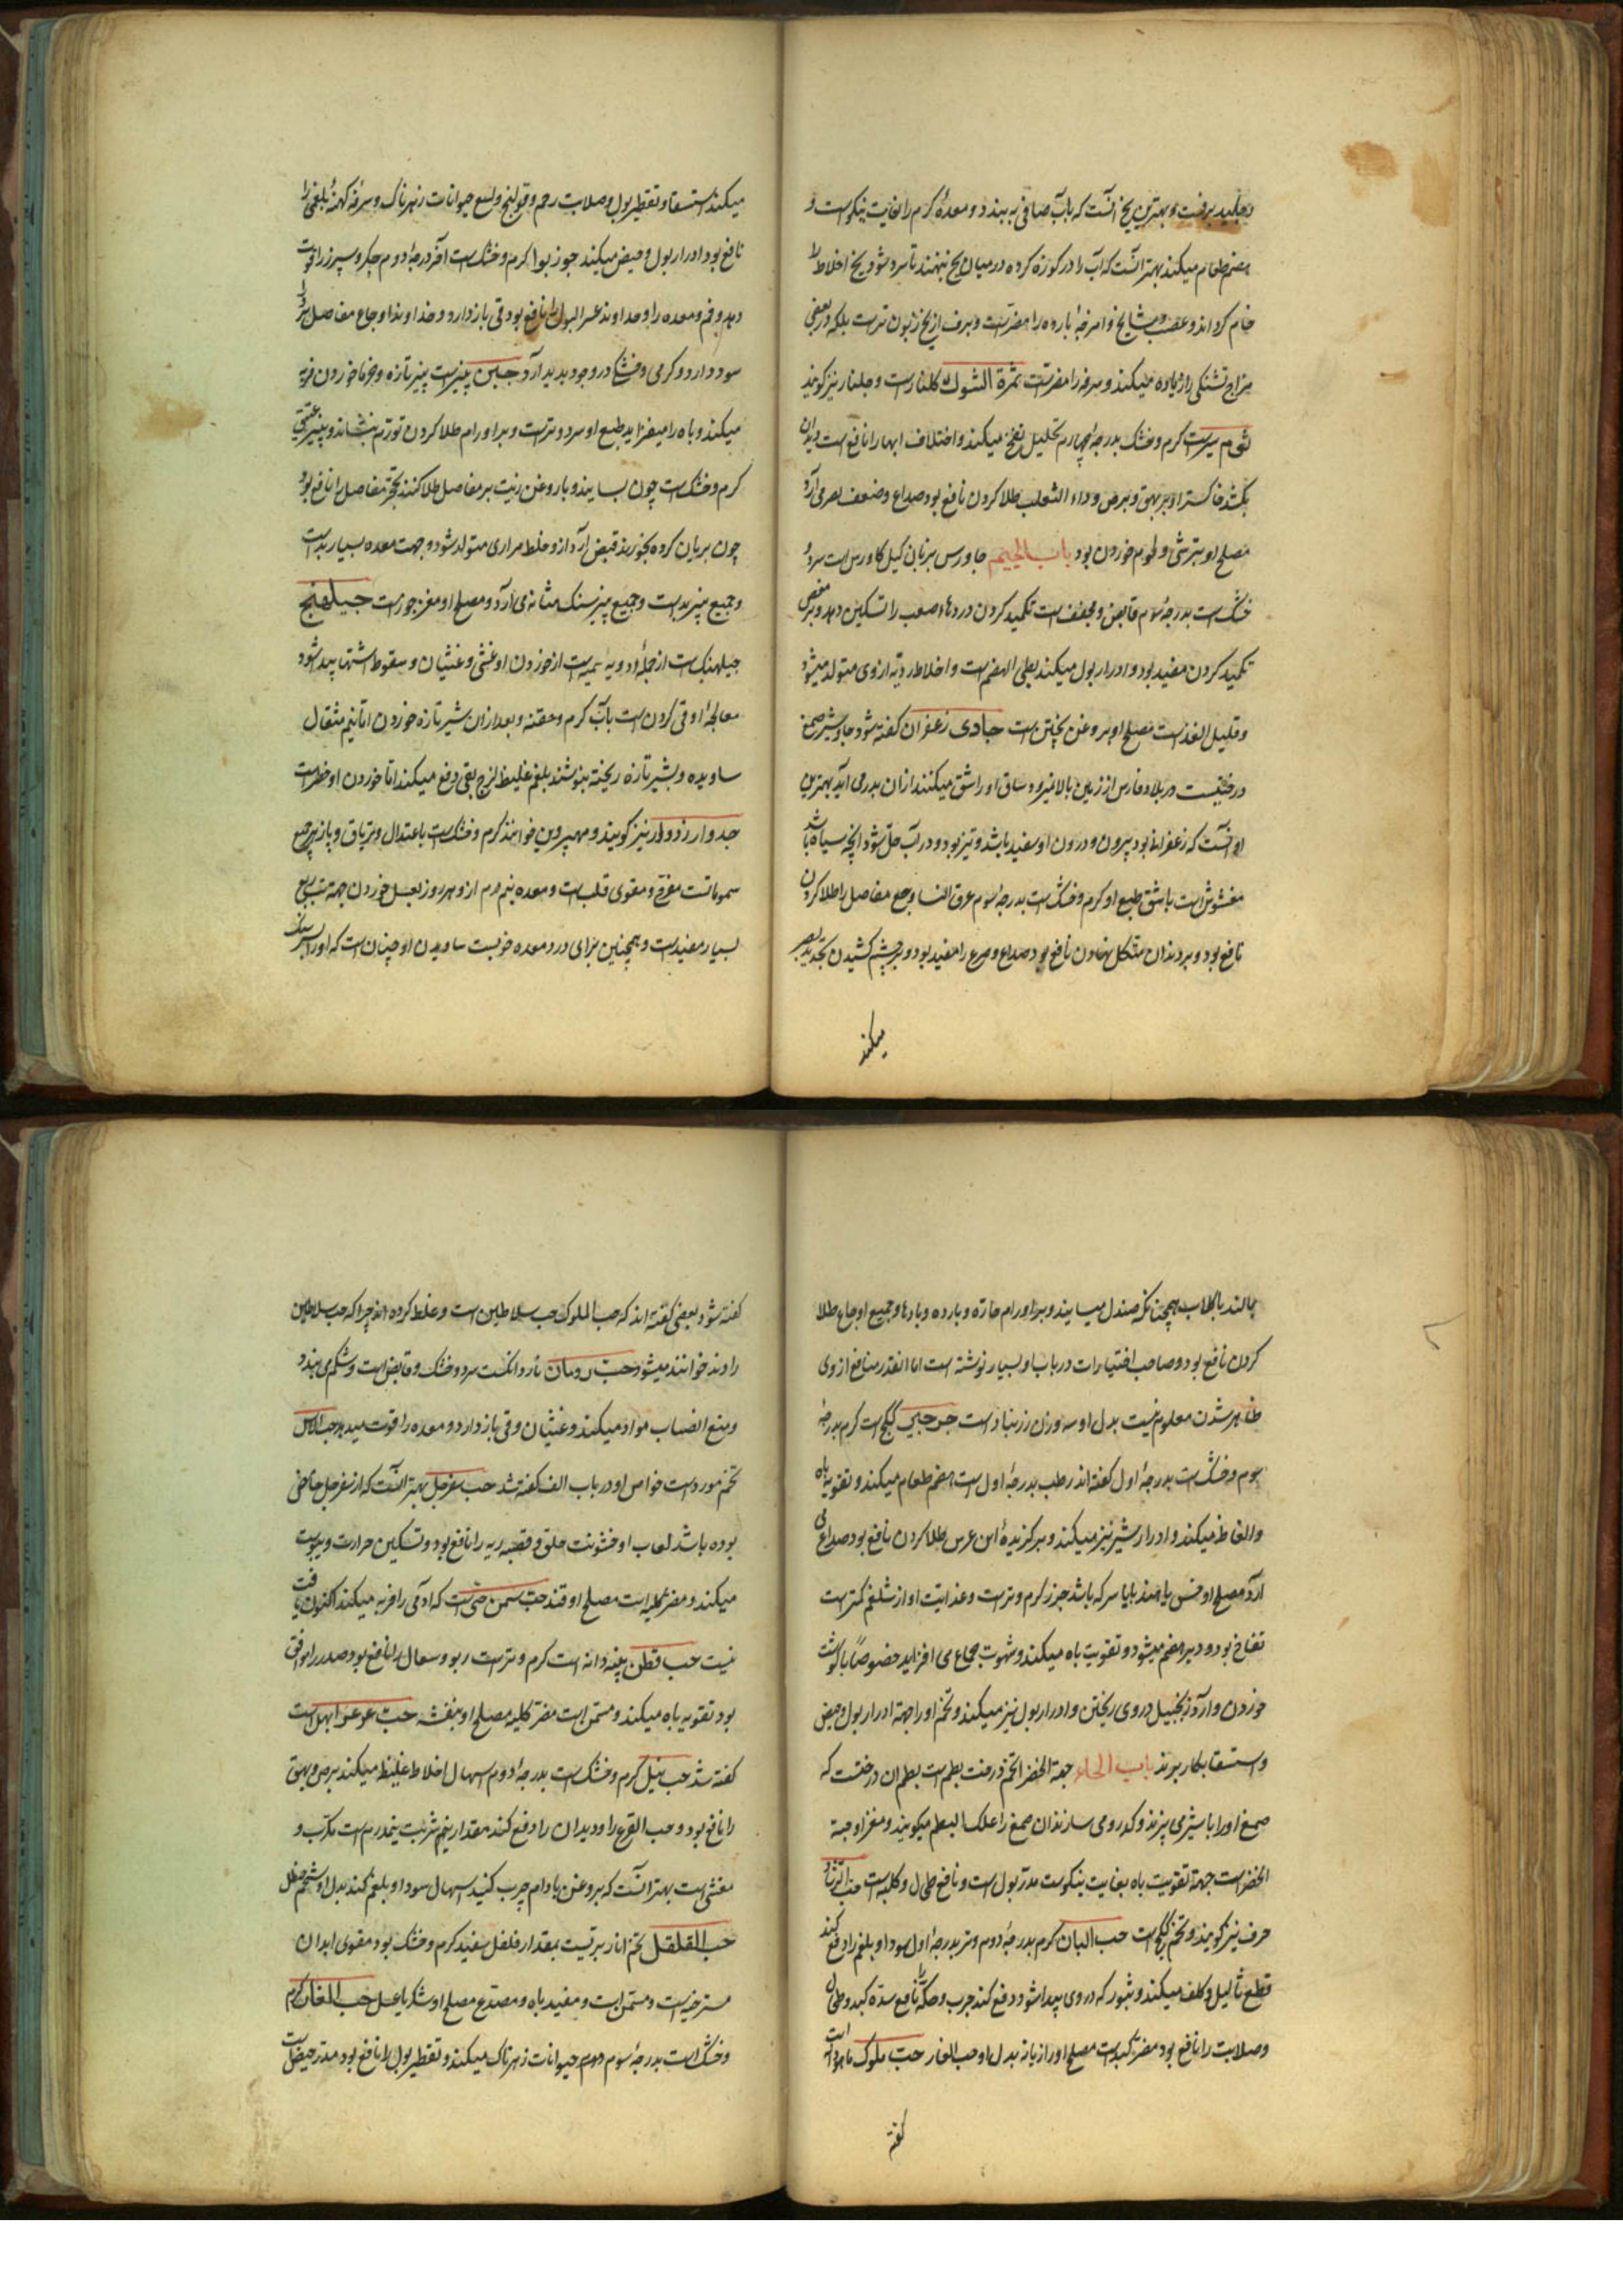 و جلید برفست و بهترین یخ آنست که بآب صافی به بندد و معدهٔ گرم را بغایت نیکوست و
هضم طعام میکند بهتر آنست که آب را در کوزه کرده در میان یخ بنهند تا سرد شود یخ اخلاط را
خام گرداند و عصب و مشایخ و امزجهٔ بارده را مضرتست و برف از یخ زبون ترست بلکه در بعضی
مزاج تشنگی را زیاده میکند و سرفه را مضرتست ثمرة الشوک گلنارست و جلنار نیز گویند
ثوم سیرست گرم و خشک بدرجهٔ چهارم تحلیل نفخ میکند و اختلاف ابها را نافع است دیدان
بکشد خاکستر او بر بهق و برص و داء الثعلب طلا کردن نافع بود صداع و ضعف بصر می آرد
مصلح او بترشی و لحوم خوردن بود باب الجیم جاورس بزبان گیل کاورس است سرد و
خشک است بدرجهٔ سوم قابض و مجفف است تکمید کردن دردهای صعب را تسکین دهد و بر مغص
تکمید کردن مفید بود و ادرار بول میکند بطی الهضم است و اخلاط ردیه از وی متولد میشود
و قلیل الغذاست مصلح او بروغن پختن است جادی زعفران گفته شود جاوشیر صمغ
درختیست در بلاد فارس از زمین بالا میرود ساق او را شق میکنند از آن بدر می آید بهترین
او آنست که زعفرانی بود بیرون و درون او سفید باشد و تیز بود و در آب حل شود آنچه سیاه باشد
مغشوش است باشق طبع او گرم و خشک است بدرجهٔ سوم عرق النسا و وجع مفاصل را طلا کردن
نافع بود و بر دندان متآکل نهادن نافع بود صداع و صرع را مفید بود و بر چشم کشیدن تجدید بصر
میکند
میکند استسقا و تقطیر بول و صلابت رحم و قولنج و لسع حیوانات زهرناک و سرفهٔ کهنهٔ بلغمی را
نافع بود ادرار بول و حیض میکند جوز بوا گرم و خشک است آخر درجهٔ دوم جگر و سپرز را قوت
دهد و فم و معده را و خداوند عسر البول را نافع بود قی باز دارد و خداوند اوجاع مفاصل را
سود دارد و گرمی و خشکی در وجود پدید آرد جبن پنیرست پنیر تازه و خرما خوردن فربه
میکند و باه را میفزاید طبع او سرد و ترست و بر اورام طلا کردن تورم بنشاند و پنیر عتیق
گرم و خشک است چون بسایند و با روغن زیت بر مفاصل طلا کنند تحجر مفاصل را نافع بود
چون بریان کرده بخورند قبض آرد از و خلط مراری متولد شود و جهت معده بسیار بدست
و جمیع پنیر بدست و جمیع پنیر سنک مثانه می آرد و مصلح او مغز جوزست جیلهنج
جیلهنک است از جملهٔ ادویهٔ سمیه است از خوردن او غشی و غثیان و سقوط اشتها پیدا شود
معالجهٔ او قی کردن است بآب گرم و حقنه و بعد از آن شیر تازه خوردن اما نیم مثقال
ساویده و بشیر تازه ریخته بنوشند بلغم غلیظ لزج بقی دفع میکند اما خوردن او خطرست
جدوار زدوار نیز گویند و مهپروین خوانند گرم و خشک است باعتدال و تریاق و پازهر جمیع
سموماتست مفرح و مقوی قلب است و معده نیم درم از و هر روز بعسل خوردن جهة تب ربع
بسیار مفیدست و همچنین برای درد معده خوبست ساویدن او چنان است که او را بر سنک
بمالند با گلاب همچنانکه صندل میسایند و بر اورام حاره و بارده و بادها و جمیع اوجاع طلا
کردن نافع بود و صاحب اختیارات در باب او بسیار نوشته است اما آنقدر منافع از وی
ظاهر شدن معلوم نیست بدل او سه وزن زرنباد است جرجیر کیکیر است گرم بدرجهٔ
سوم و خشک است بدرجهٔ اول گفته اند رطب بدرجهٔ اول است هضم طعام میکند و تقویه باه
و انعاظ میکند و ادرار شیر نیز میکند و بر گزیدهٔ ابن عرس طلا کردن نافع بود صداع می
آرد مصلح او خس یا هندبا یا سرکه باشد جزر گرم و ترست و غذائیت او از شلغم کمترست
نفاخ بود و دیر هضم میشود و تقویت باه میکند و شهوت جماع می افزاید خصوصاً با گوشت
خوردن و آرد زنجبیل در وی ریختن و ادرار بول نیز میکند و تخم او را جهة ادرار بول و حیض
و استسقا بکار برند باب الحاء حبة الخضرا تخم درخت بطم است بطم آن درخست که
صمغ او را با شیر می پزند و کدر می سازند آن صمغ را علک البطم میگویند و مغز او حبة
الخضراست جهة تقویت باه بغایت نیکوست مدر بول است و نافع طحال و کلیه است حب الرشاد
حرف نیز گویند و تخم کیکیر است حب البان گرم بدرجهٔ دوم و تر بدرجهٔ اول سودا و بلغم را دفع کند
قطع ثآلیل و کلف میکند و بثور که در وی پیدا شود دفع کند جرب و حکه را نافع سده کبد و طحال
و صلابت را نافع بود مضر کبد است مصلح او رازیانه بدل او حب الغار حب ملوک ماهودانه است
گفته
گفته شود بعضی گفته اند که حب الملوک حب سلاطین است و غلط کرده اند چرا که حب سلاطین
را دند خوانند میشود حب رمان ناردانکست سرد و خشک و قابض است و شکم می بندد
و منع انصباب مواد میکند و غثیان و قی باز دارد و معده را قوت میدهد حب الآس
تخم مورد است خواص او در باب الف گفته شد حب سفرجل بهتر آنست که از سفرجل حامض
بوده باشد لعاب او خشونت حلق و قصبه ریه را نافع بود و تسکین حرارت و یبوست
میکند و مضر کلیه است مصلح او قند حب سمن حبی است که آدمی را فربه میکند اکنون یافت
نیست حب قطن پنبه دانه است گرم و ترست ربو و سعال را نافع بود صدر را موافق
بود تقویه باه میکند و مسمن است مضر کلیه مصلح او بنفشه حب عرعر ابهل است
گفته شد حب نیل گرم و خشک است بدرجهٔ دوم اسهال اخلاط غلیظ میکند برص و بهق
را نافع بود و حب القرع را و دیدان را دفع کند مقدار نیم شربت نیمدرم است مکرب و
مغثی است بهتر آنست که بروغن بادام چرب کنند اسهال سودا و بلغم کند بدل او شحم حنظل
حب القلقل تخم انار بریست بمقدار فلفل سفید گرم و خشک بود مقوی ابدان
مسترخیست و مسمن است و مفید باه و مصدع مصلح او شکر یا عسل حب الغار گرم
و خشک است بدرجهٔ سوم دفع سم حیوانات زهرناک میکند و تقطیر بول را نافع بود مدر حیض است